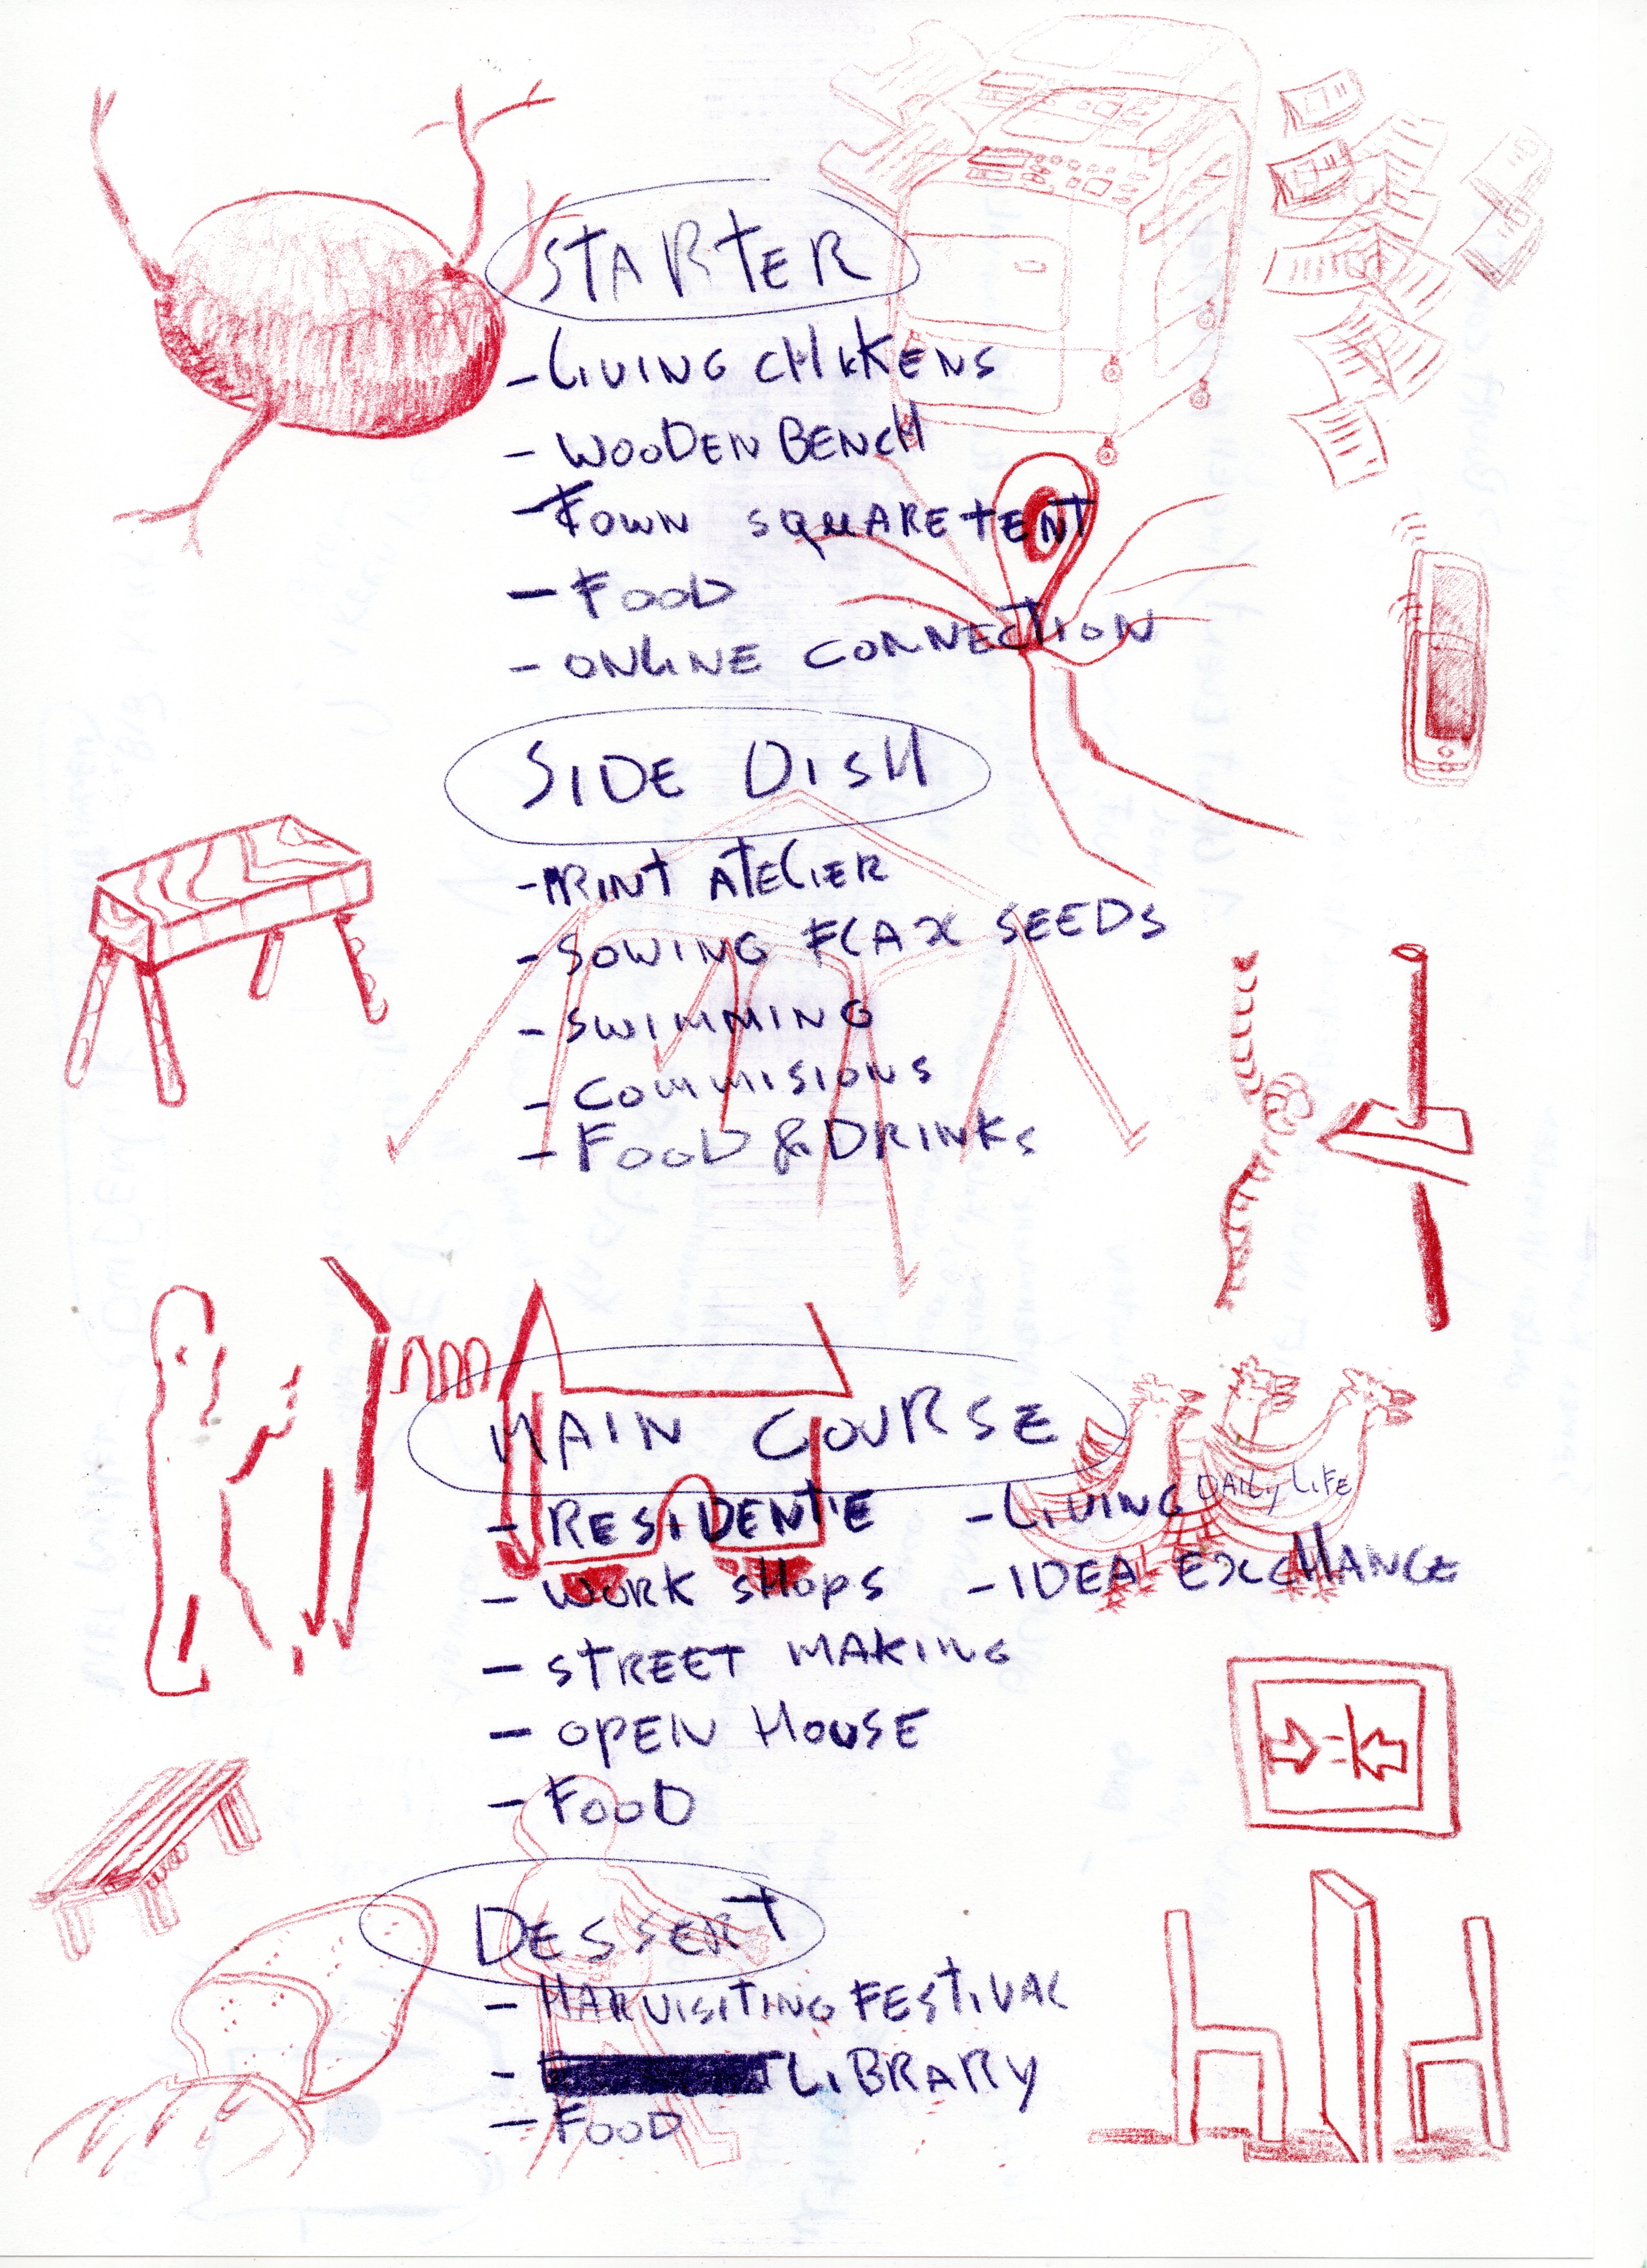 STARTER
- LIVING CHIKKENS
- WOODEN BENCH
- TOWN SQUARE TENT
- FOOD
- ONLINE CONNECTION
SIDE DISH
- PRINT ATELIER
- SOWING FLAX SEEDS
- SWIMMING
- COMMISIONS
- FOOD & DRINKS
MAIN COURSE
- RESIDENTIE
- WORK SHOPS
- STREET MAKING
- OPEN HOUSE
- FOOD
- LIVING DAILY LIFE
- IDEA EXCHANGE
DESSERT
- HARVISITING FESTIVAL
- LIBRARY
- FOOD